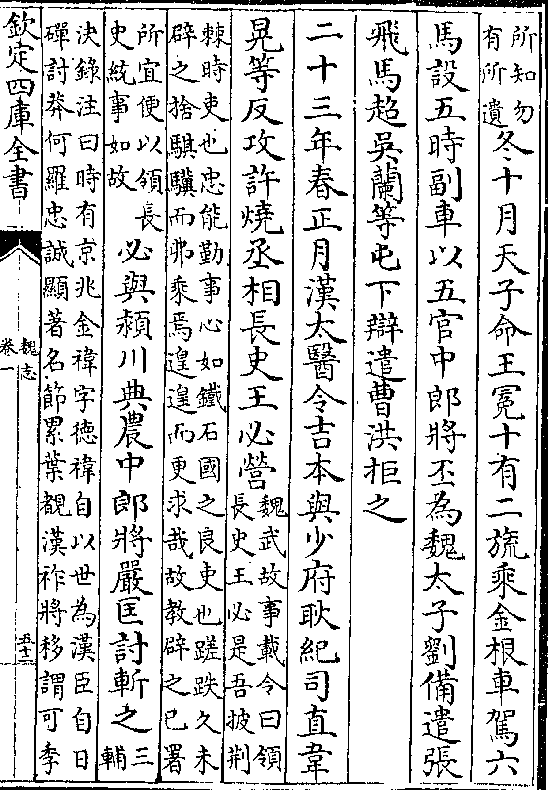 所知勿
有所遺
冬十月天子命王冕十有二旒乘金根車駕六
馬設五時副車以五官中郎將丕為魏太子劉備遣張
飛馬超吳蘭等屯下辯遣曹洪拒之
二十三年春正月漢太醫令吉本與少府耿紀司直韋
晃等反攻許燒丞相長史王必營
魏武故事載令曰領
長史王必是吾披荆
棘時吏也忠能勤事心如鐵石國之良吏也蹉跌久未
辟之捨騏驥而弗乘焉遑遑而更求哉故教辟之已署
所宜便以領長
史統事如故
必與潁川典農中郎將嚴匡討斬之
三
輔
決錄注曰時有京兆金禕字徳禕自以世為漢臣自日
磾討莽何羅忠誠顯著名節累葉覩漢祚將移謂可季
欽定四庫全書
魏志
卷一
五十二